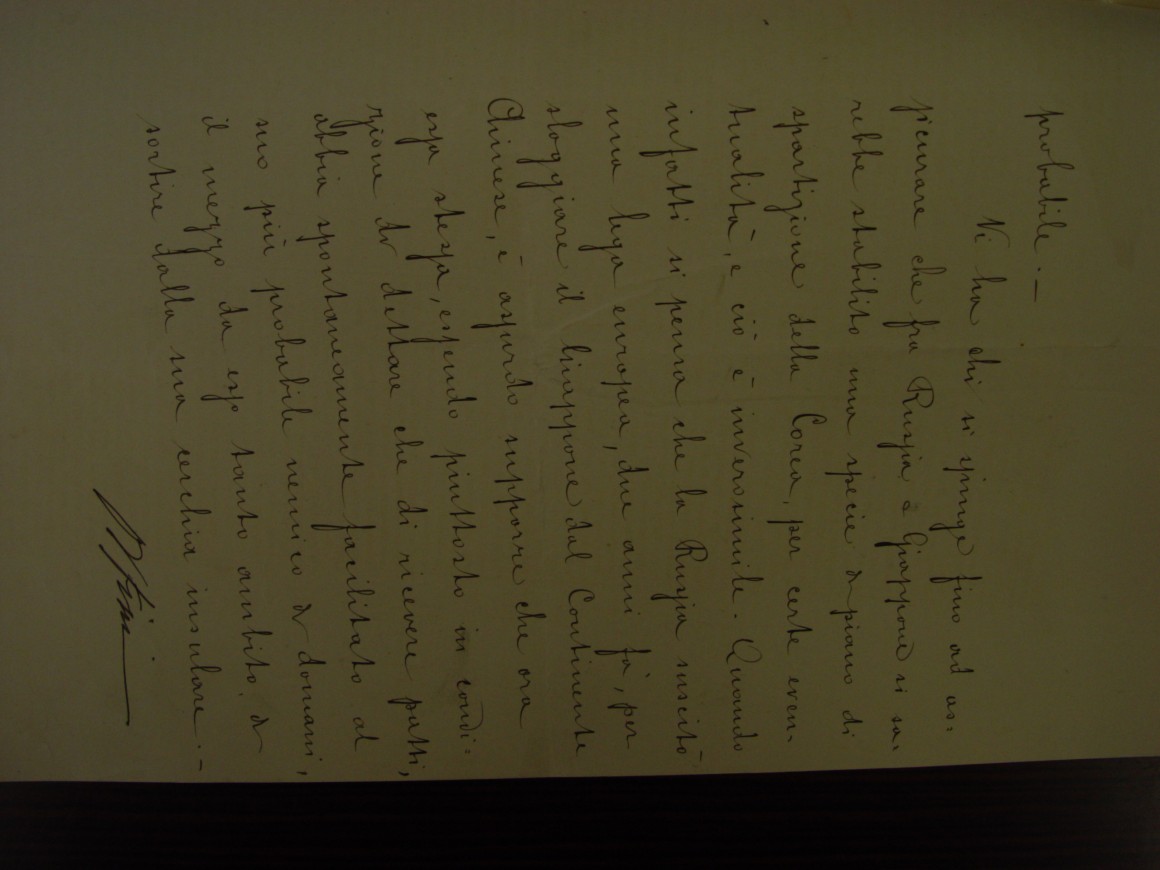 probabile. —
Vi ha chi si spinge fino ad as:
sicurare che fra Russia e Giappone si sa:
rebbe stabilito una specie di piano di
spartizione della Corea, per certe even:
tualità, e ciò è inverosimile. Quando
infatti si pensa che la Russia suscitò
una lega europea, due anni fà, per
sloggiare il Giappone dal Continente
Chinese, è assurdo supporre che ora
essa stessa, essendo piuttosto in condi:
zione di dettare che di ricevere patti,
abbia spontaneamente facilitato al
suo più probabile nemico di domani,
il mezzo da esso tanto ambito, di
sortire dalla sua cerchia insulare. —